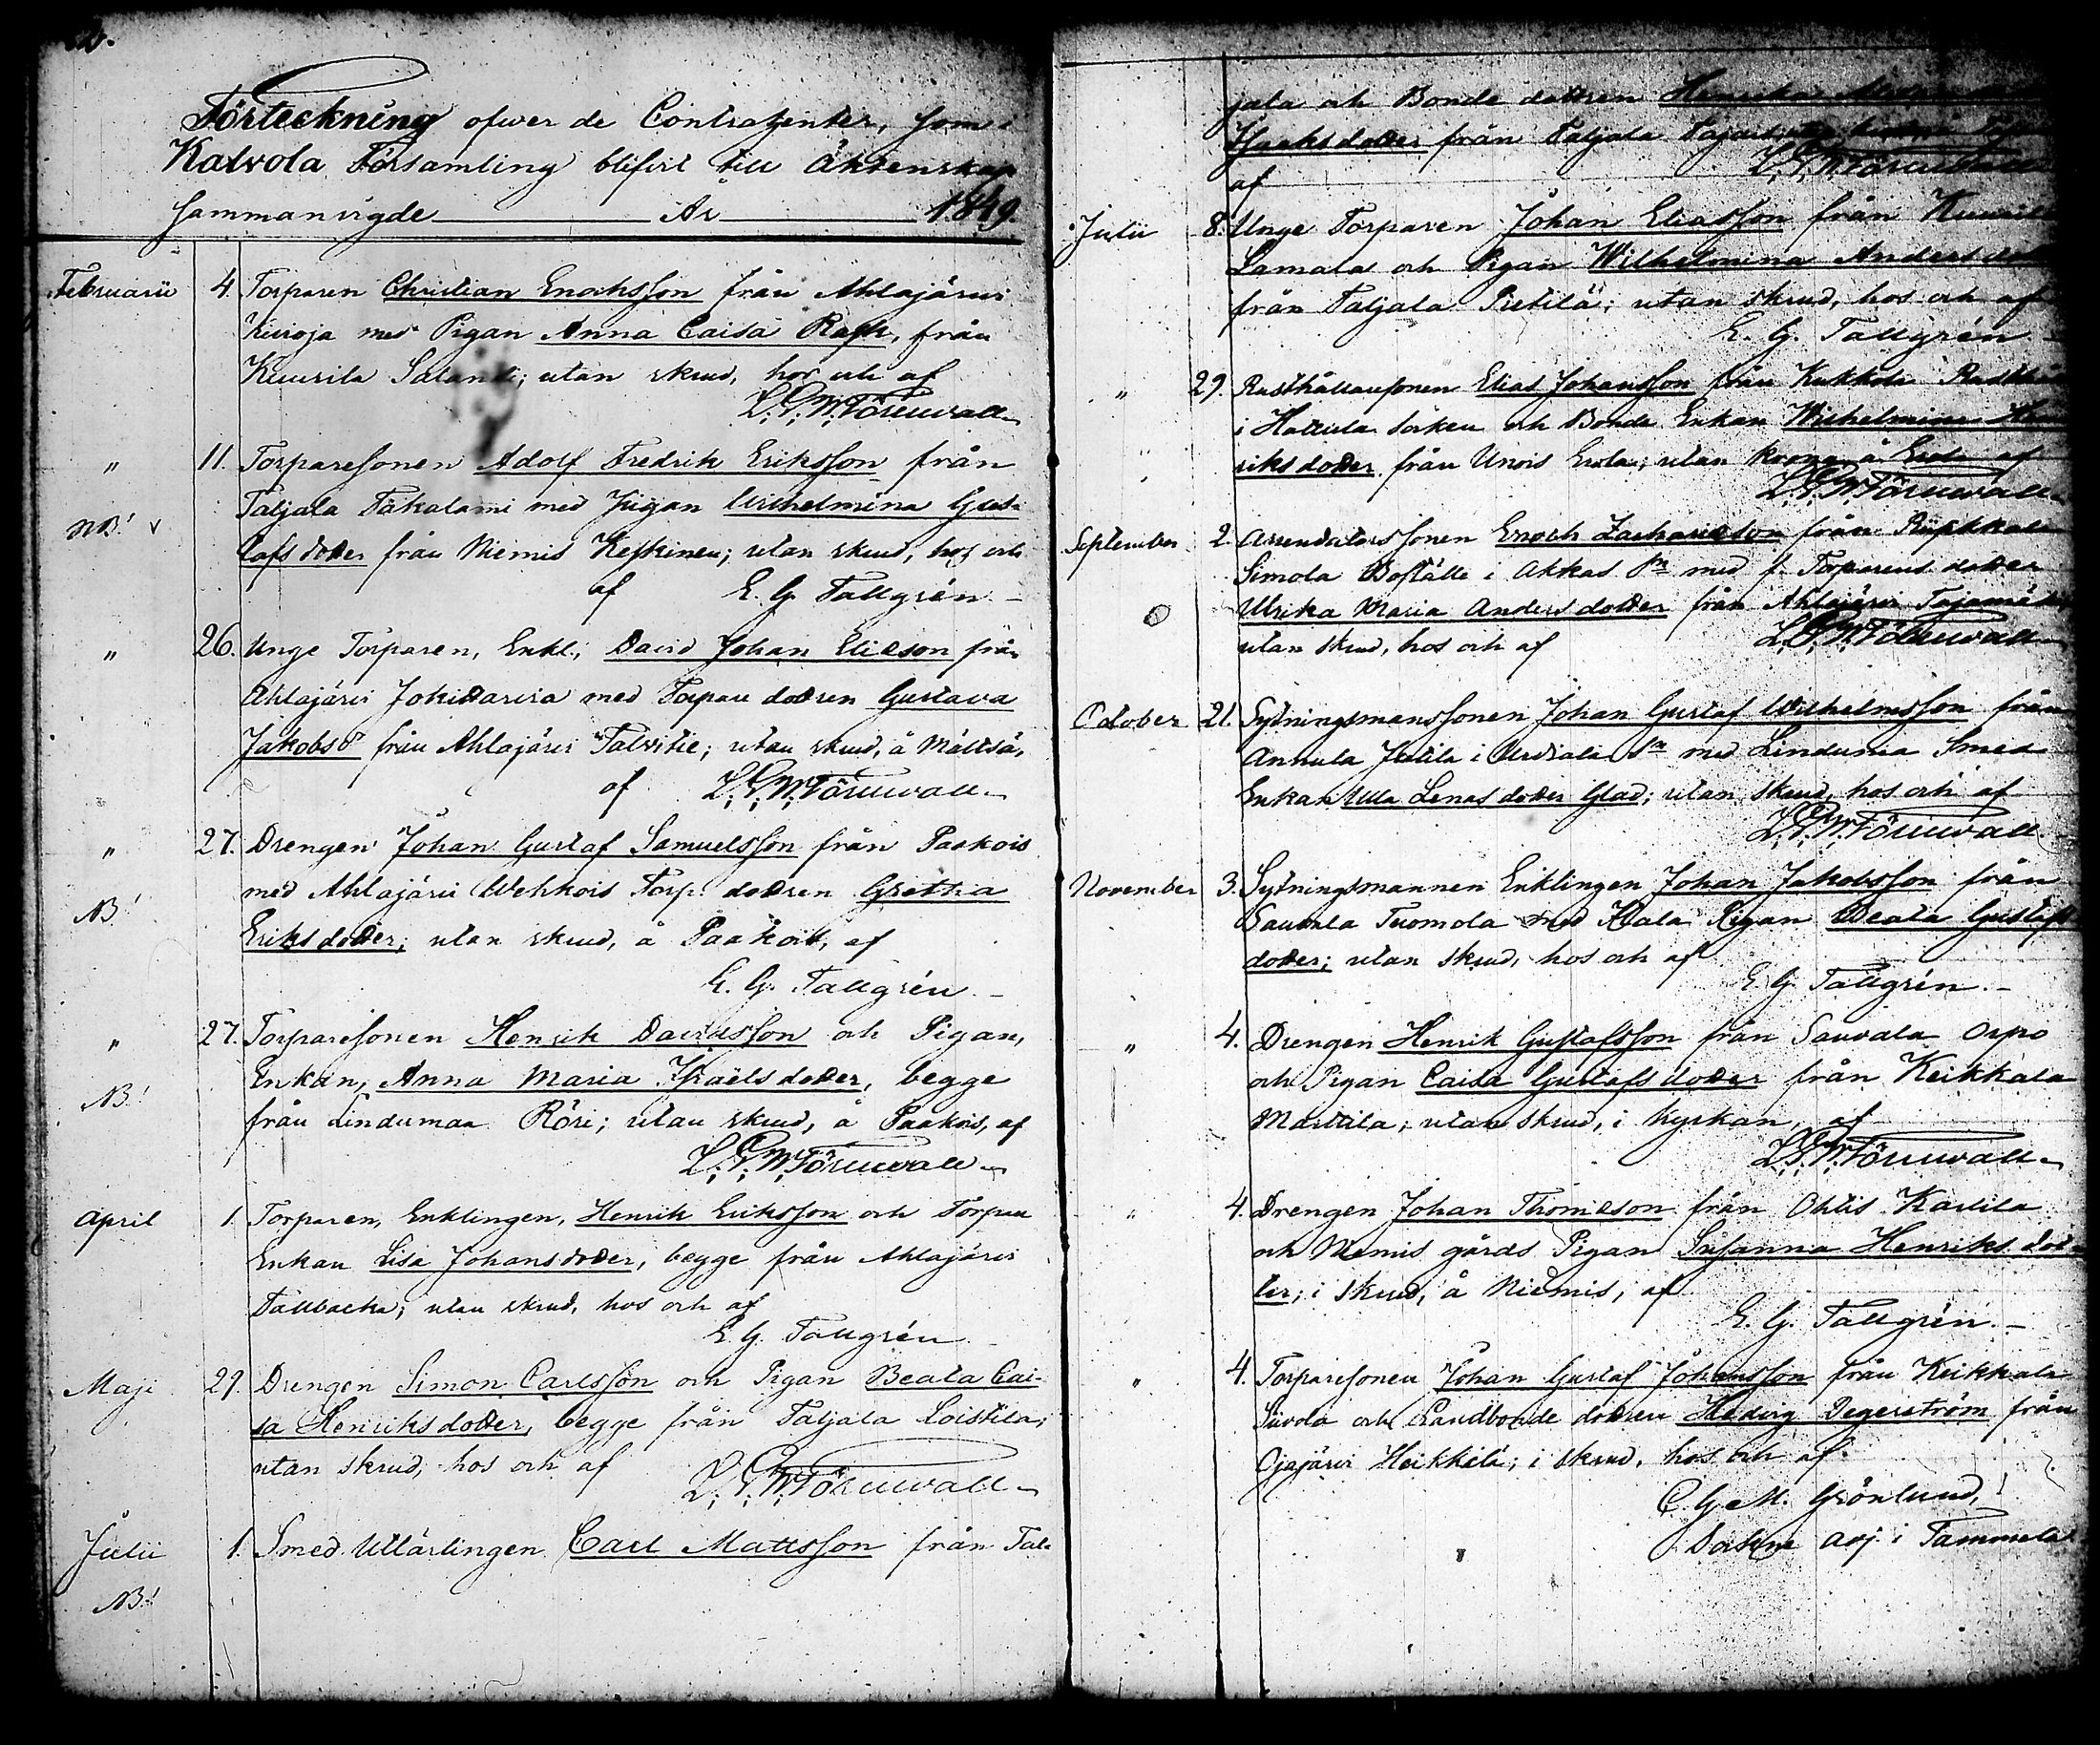 Förteckning öfwer de Contrahenter, som i
Kalvola Församling blifvit till Äktenskap
sammanvigde År 1849.
Februarii 4. Torparen Christian Enochsson från Ahlajärvi
Kivioja med Pigan Anna Caisa Rask, från
Kuurila ; utan skrud, hos och af
L. G. W. Törnwall
" 11. Torparesonen Adolf Fredrik Eriksson från
Taljala Takalami med Pigan Wilhelmina Gus-
NB! v tafs dotter från Niemis Keskinen; utan skrud, hos och
af E. G. Tallgrén.
" 26. Unge Torparen, Enkl., David Johan Eliæson från
Ahlajärvi med Torpare dottren Gustava
Jakobs dr från Ahlajärvi Talvitie; utan skrud, å
af L. G. W. Törnwall
" 27. Drengen Johan Gustaf Samuelsson från Paakois
NB! med Ahlajärvi Wehkois Torp. dottren Gretha
Eriks dotter; utan skrud, å Paakois, af
E. G. Tallgrén.
" 27. Torparesonen Henrik Davidsson och Pigan,
NB! Enkan, Anna Maria Israëls dotter, begge
från Lindumaa ; utan skrud, å Paakois, af
L. G. W. Törnwall
April 1. Torparen, Enklingen, Henrik Eriksson och Torpare
Enkan Lisa Johansdotter, begge från Ahlajärvi
Tallbacka; utan skrud, hos och af
E. G. Tallgrén
Maji 29. Drengen Simon Carlsson och Pigan Beata Cai-
sa Henriksdotter, begge från Taljala Loistila;
utan skrud, hos och af L. G. W. Törnwall
Julii 1. Smed Utlärlingen Carl Mattsson från Tal-
NB!
jala och Bonde dottren
Isaks dotter från Taljala
af L. G. W. Törnwall
Julii 8. Unge Torparen Johan Eliasson från Kuurila
Lamala och Pigan Wilhelmina Anders
från Taljala Pietilä; utan skrud, hos och af
E. G. Tallgrén
" 29. Rusthållaresonen Elias Johansson från
i Hattula Socken och Bonde Enkan Wilhelmina Hen
riks dotter från Unois Erola; utan krona å af
L. G. W. Törnwall
September 2. Arrendatorssonen Enoch Zachariæson från
Simola Boställe i Akkas Sn med f. Torparens dotter
Ulrika Maria Anders dotter från Ahlajärvi
utan skrud, hos och af L. G. W. Törnwall
October 21. Sytningsmanssonen Johan Gustaf Wilhelmsson från
Annula i Urdiala Sn med Lindumaa Smed
Enkan Ulla Lenas dotter Glad; utan skrud, hos och af
L. G. W. Törnwall
November 3. Sytningsmannen Enklingen Johan Jakobsson från
Sauvala Tuomola med Pigan Beata Gustafs
dotter; utan skrud, hos och af
E. G. Tallgrén.
" 4. Drengen Henrik Gustafsson från Sauvala Orpo
och Pigan Caisa Gustafs dotter från Keikkala
Marttila; utan skrud, i kyrkan, af
L. G. W. Törnwall
" 4. Drengen Johan Thomæson från Ohtis Karlila
och Niemis gårds Pigan Susanna Henriks dot-
ter; i skrud, å Niemis, af
E. G. Tallgrén.
" 4. Torparesonen Johan Gustaf Johansson från Keikkala
och Landbonde dottren Hedvig Degerström från
Ojajärvi Heikkilä; i skrud, hos och af
C. G. M. Grönlund,
Sockne Adj. i Tammela